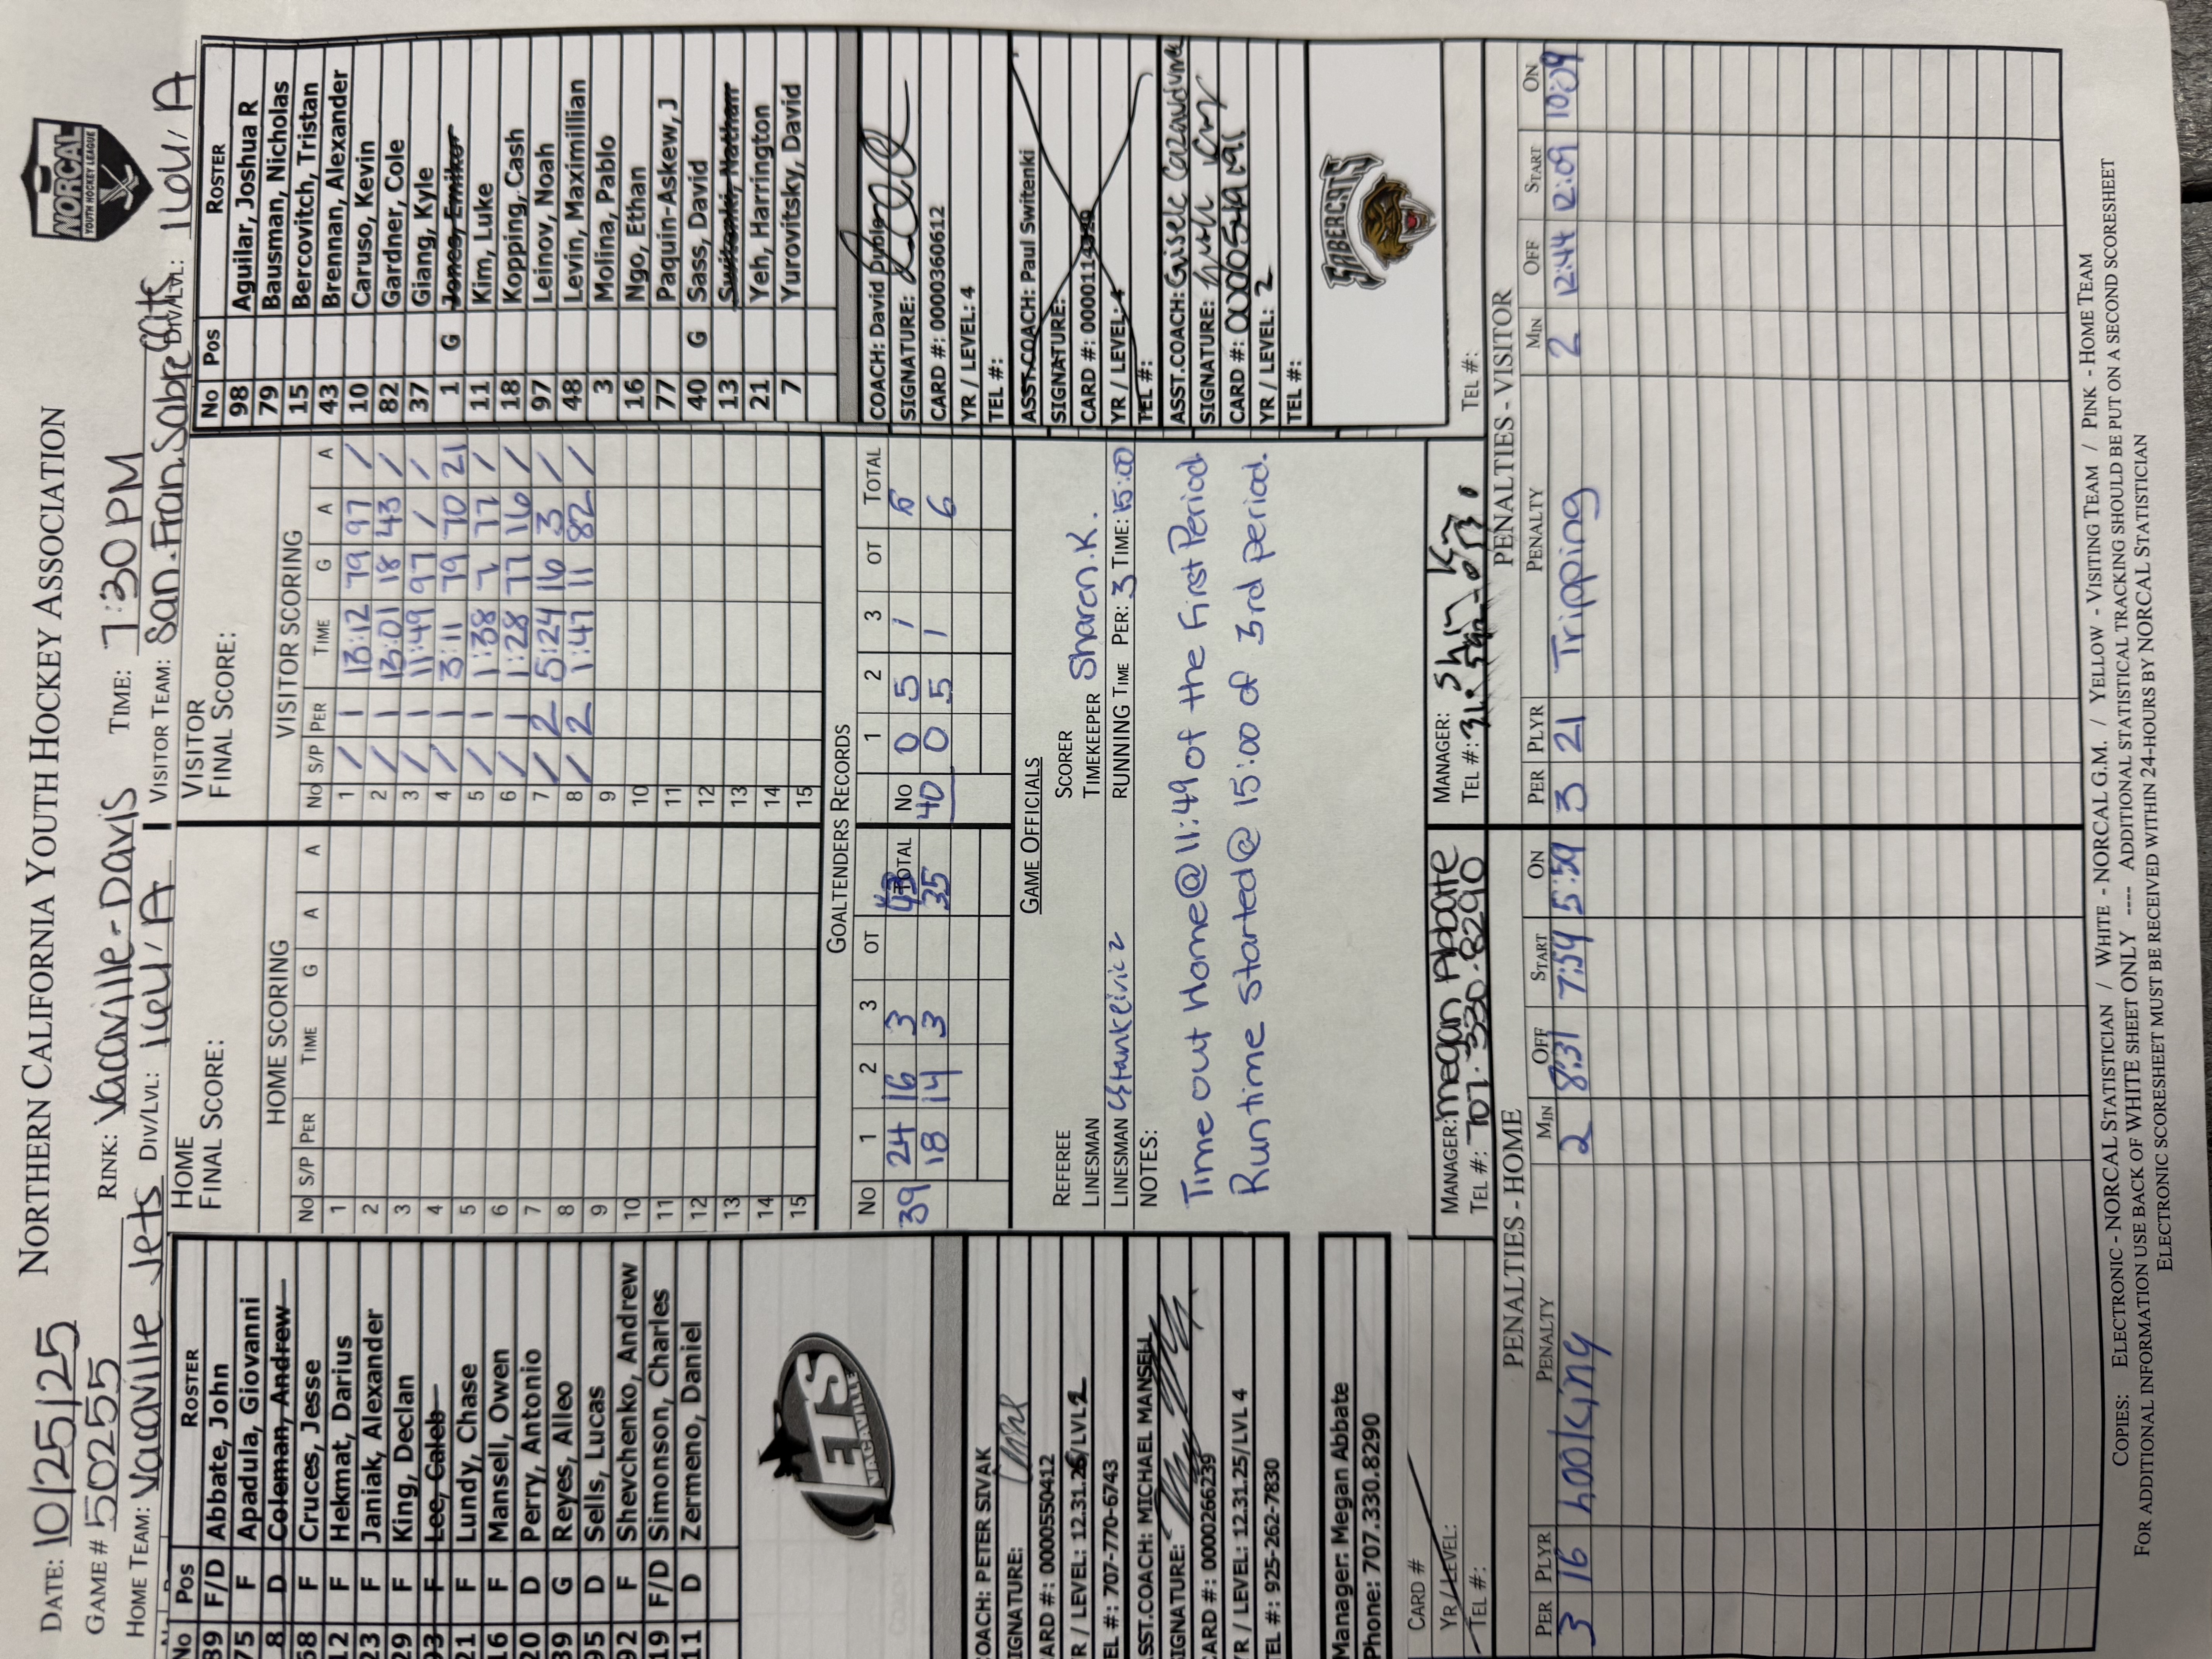 NORTHERN CALIFORNIA YOUTH HOCKEY ASSOCIATION
NORCAL
YOUTH HOCKEY LEAGUE
DATE: 10/25/25
GAME # 50255 RINK: Vacaville-Davis TIME: 7:30PM
HOME TEAM: Vacaville Jets DIV/LVL: 16U/A VISITOR TEAM: San.Fran.SabreCats DIV/LVL: 16U/A
No Pos ROSTER
89 F/D Abbate, John
75 F Apadula, Giovanni
8 D Coleman, Andrew
68 F Cruces, Jesse
12 F Hekmat, Darius
23 F Janiak, Alexander
29 F King, Declan
93 F Lee, Caleb
21 F Lundy, Chase
16 F Mansell, Owen
20 D Perry, Antonio
39 G Reyes, Alleo
95 D Sells, Lucas
92 F Shevchenko, Andrew
19 F/D Simonson, Charles
11 D Zermeno, Daniel
JETS
VACAVILLE
COACH: PETER SIVAK
SIGNATURE:
CARD #: 0000550412
YR / LEVEL: 12.31.26/LVL2
TEL #: 707-770-6743
ASST.COACH: MICHAEL MANSELL
SIGNATURE:
CARD #: 0000266239
YR / LEVEL: 12.31.25/LVL 4
TEL #: 925-262-7830
Manager: Megan Abbate
Phone: 707.330.8290
CARD #
YR/LEVEL:
TEL #:
HOME
FINAL SCORE:
HOME SCORING
No S/P PER TIME G A A
1
2
3
4
5
6
7
8
9
10
11
12
13
14
15
VISITOR
FINAL SCORE:
VISITOR SCORING
No S/P PER TIME G A A
1 / 1 13:12 79 97 /
2 / 1 13:01 18 43 /
3 / 1 11:49 97 / /
4 / 1 3:11 79 70 21
5 / 1 1:38 7 77 /
6 / 1 1:28 77 16 /
7 / 2 5:24 16 3 /
8 / 2 1:47 11 82 /
9
10
11
12
13
14
15
GOALTENDERS RECORDS
No 1 2 3 OT TOTAL No 1 2 3 OT TOTAL
39 24 16 3 43 40 0 5 1 6
18 14 3 35 0 5 1 6
GAME OFFICIALS
REFEREE SCORER
LINESMAN TIMEKEEPER Sharen.K.
LINESMAN RUNNING TIME PER: 3 TIME: 15:00
NOTES:
Time out Home@11:49 of the First Period
Run time started@ 15:00 of 3rd period.
MANAGER: Megan Abbate
TEL #: 707-330-8290
MANAGER:
TEL #:
No Pos ROSTER
98 Aguilar, Joshua R
79 Bausman, Nicholas
15 Bercovitch, Tristan
43 Brennan, Alexander
10 Caruso, Kevin
82 Gardner, Cole
37 Giang, Kyle
1 G Jones, Emiko
11 Kim, Luke
18 Kopping, Cash
97 Leinov, Noah
48 Levin, Maximillian
3 Molina, Pablo
16 Ngo, Ethan
77 Paquin-Askew, J
40 G Sass, David
13 Switenki, Nathan
21 Yeh, Harrington
7 Yurovitsky, David
COACH: David Dyble
SIGNATURE:
CARD #: 0000360612
YR / LEVEL: 4
TEL #:
ASST.COACH: Paul Switenki
SIGNATURE:
CARD #:
YR / LEVEL: 4
TEL #:
ASST.COACH: Gisele
SIGNATURE:
CARD #:
YR / LEVEL: 2
TEL #:
SABERCATS
TEL #:
PENALTIES - HOME
PER PLYR PENALTY MIN OFF START ON
3 16 hooking 2 8:31 7:54 5:59
PENALTIES - VISITOR
PER PLYR PENALTY MIN OFF START ON
3 21 Tripping 2 12:44 12:09 10:09
COPIES: ELECTRONIC - NORCAL STATISTICIAN / WHITE - NORCAL G.M. / YELLOW - VISITING TEAM / PINK - HOME TEAM
FOR ADDITIONAL INFORMATION USE BACK OF WHITE SHEET ONLY ---- ADDITIONAL STATISTICAL TRACKING SHOULD BE PUT ON A SECOND SCORESHEET
ELECTRONIC SCORESHEET MUST BE RECEIVED WITHIN 24-HOURS BY NORCAL STATISTICIAN